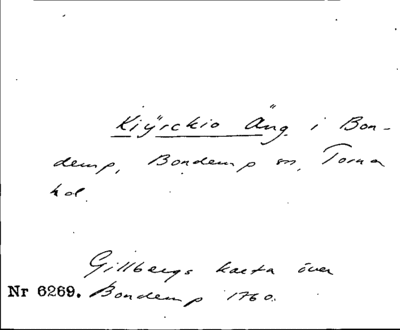 Kiÿrckio Äng i Bon-
demp, Bondemp sn, Torna
hd.
Gillbergs karta över
Nr 6269. Bondemp 1760.